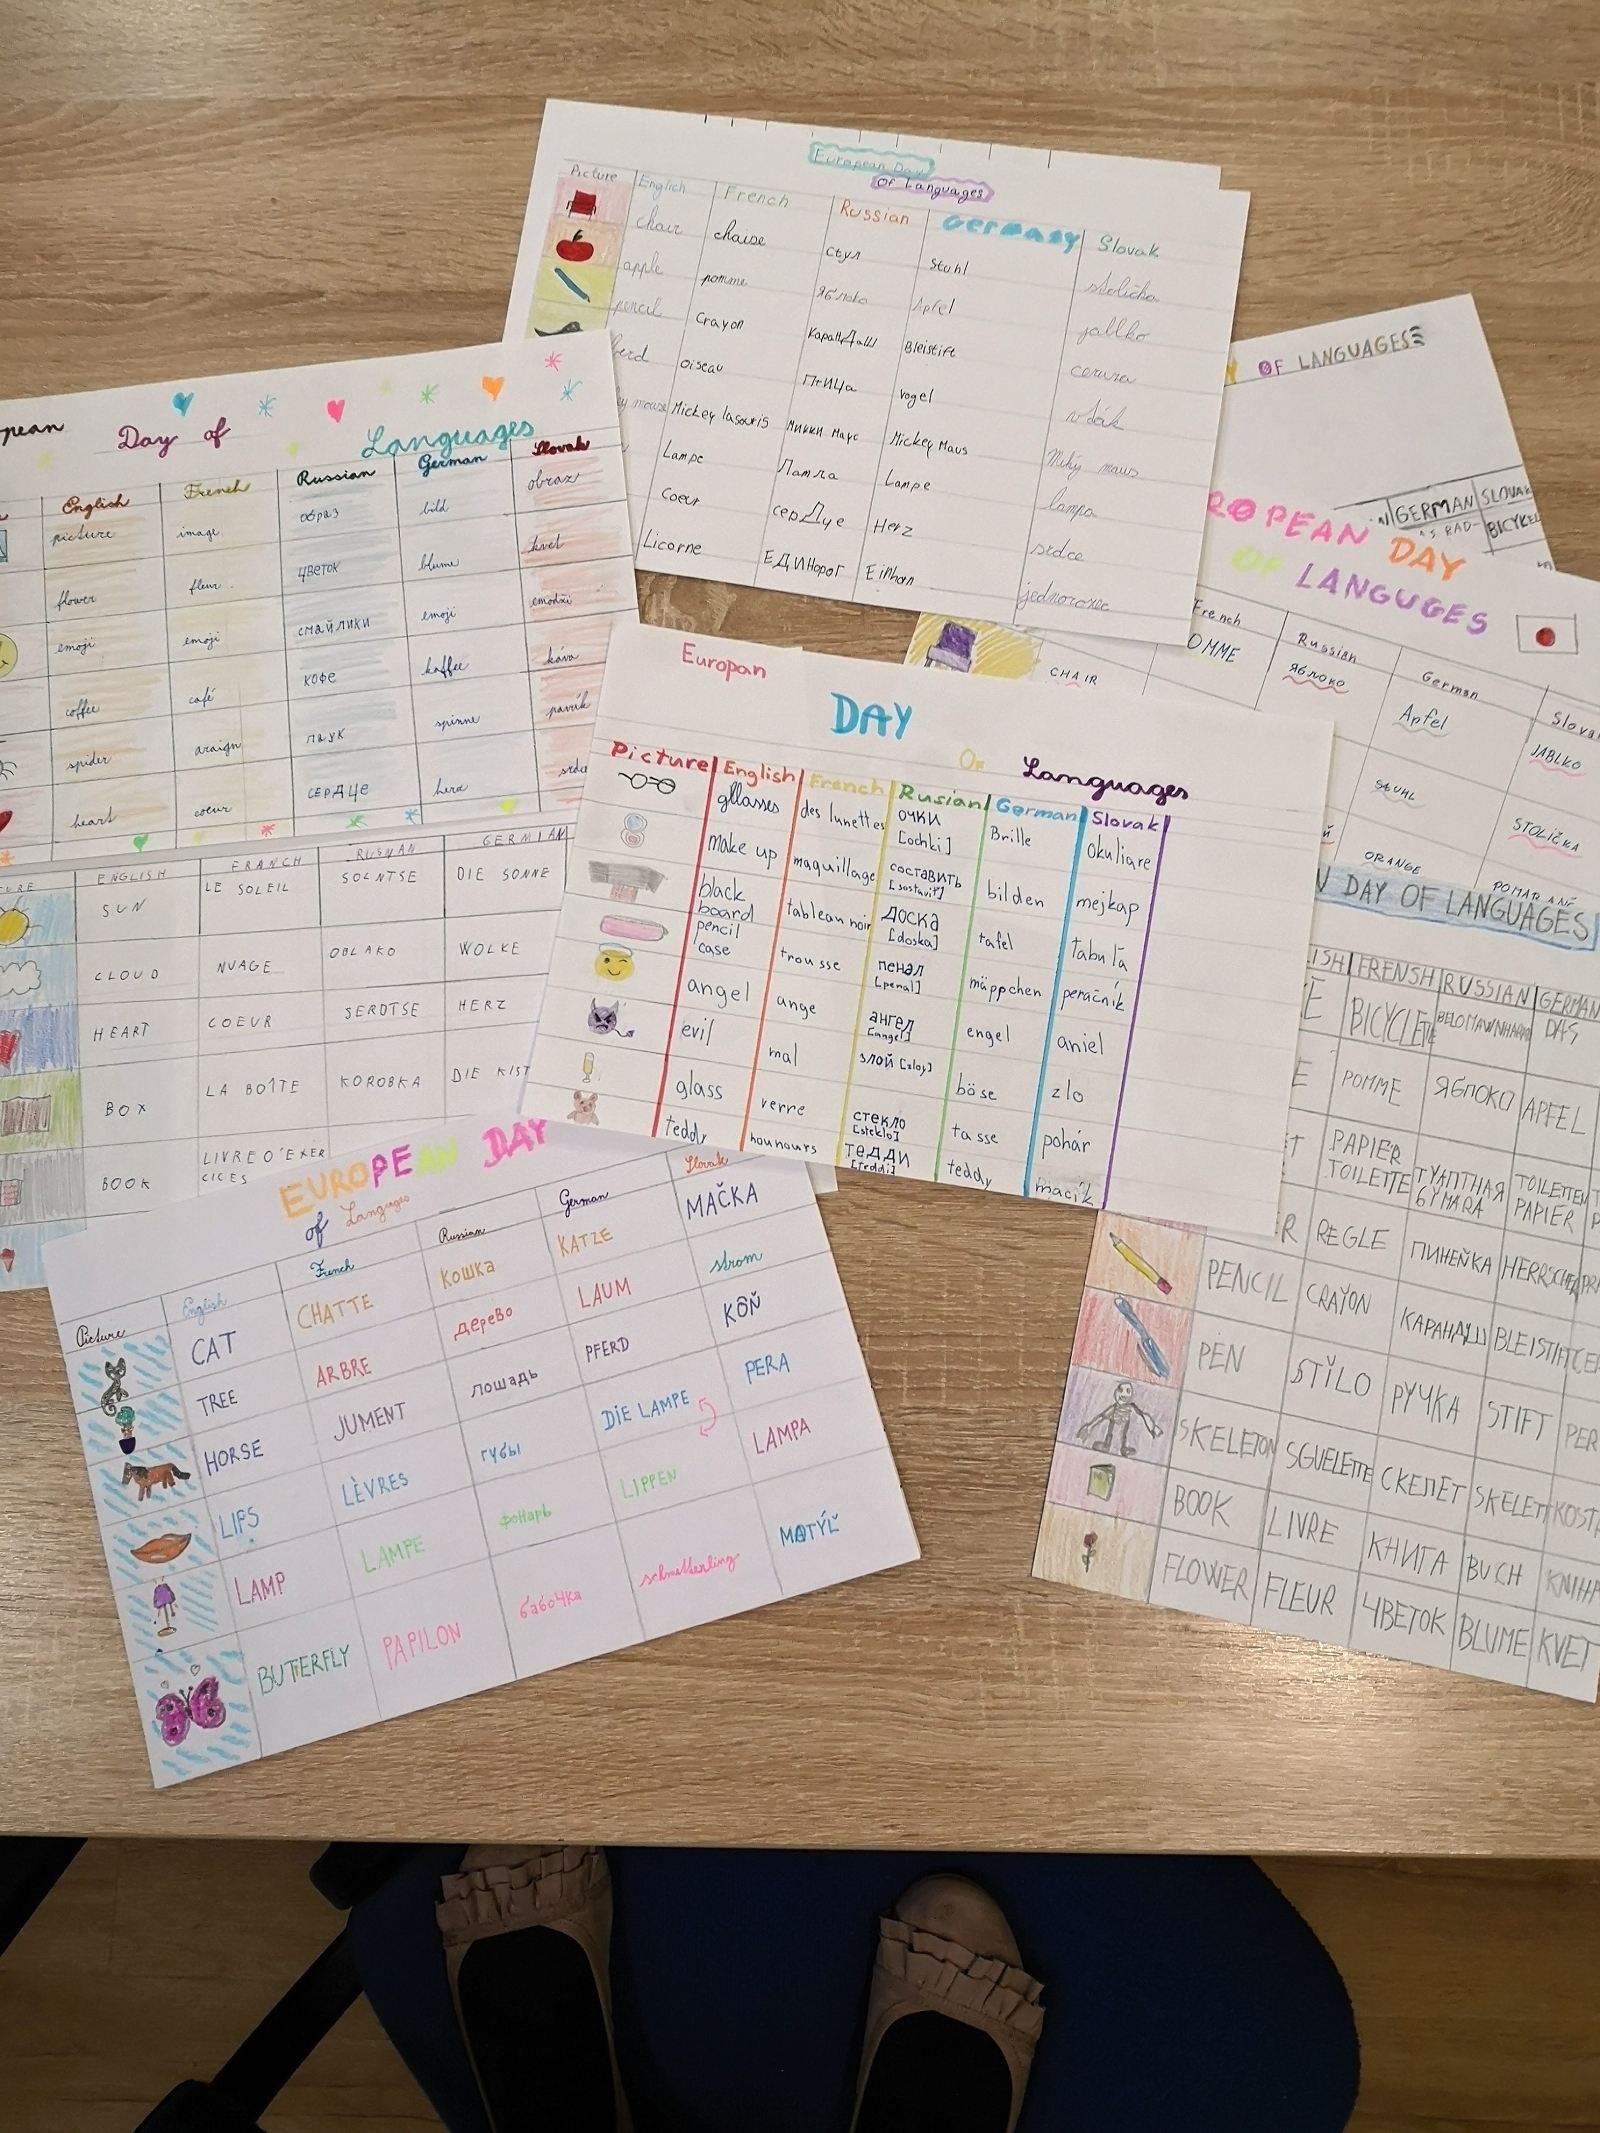 European Day
Of Languages
Picture English French Russian Germany Slovak
chair chaise стул Stuhl stolička
apple pomme яблоко Apfel jablko
pencil crayon каранДаш Bleistift ceruza
oiseau птица vogel vták
mouse Mickey lasouris микки маус Mickey Maus Miky maus
Lampe Лампа Lampe lampa
coeur серДце Herz srdce
Licorne ЕДИНорог Einhorn jednorožec
pean Day of Languages
English French Russian German Slovak
picture image образ bild obraz
flower fleur цветок blume kvet
emoji emoji смайлики emoji emodži
coffee café кофе kaffee káva
spider araign паук spinne pavúk
heart coeur сердце herz srdce
URE ENGLISH FRANCH RUSNAN GERMIAN
SUN LE SOLEIL SOLNTSE DIE SONNE
CLOUD NUAGE OBLAKO WOLKE
HEART COEUR SERDTSE HERZ
BOX LA BOÎTE KOROBKA DIE KIST
BOOK LIVRE O'EXER
CICES
Europan
DAY
OF Languages
Picture English French Rusian German Slovak
gllasses des lunettes очки
[ochki] Brille okuliare
make up maquillage составить
[sostavit'] bilden mejkap
black
board tableau noir доска
[doska] tafel tabuľa
pencil
case trousse пенал
[penal] mäppchen peračník
angel ange ангел
[angel] engel aniel
evil mal злой [zloy] böse zlo
glass verre стекло
[steklo] tasse pohár
teddy nounours тедди
[teddi] teddy macík
EUROPEAN DAY
of Languages
Picture English French Russian German Slovak
CAT CHATTE кошка KATZE MAČKA
TREE ARBRE дерево LAUM strom
HORSE JUMENT лошадь PFERD KÔŇ
LIPS LÈVRES губы DIE LAMPE PERA
LAMP LAMPE фонарь LIPPEN LAMPA
BUTTERFLY PAPILON бабочка schmetterling MOTÝĽ
Y OF LANGUAGES
N GERMAN SLOVAK
RAD- BICYKEL
ROPEAN DAY
OF LANGUGES
French Russian German Slova
OMME яблоко Apfel JABLKO
CHAIR
STUHL STOLIČKA
ORANGE POMARANČ
N DAY OF LANGUAGES
ISH FRENSH RUSSIAN GERMAN
E BICYCLETTE DAS
E POMME ЯБЛОКО APFEL
T PAPIER
TOILETTE ТУАПТНАЯ
БУМАRА TOILETTEN
PAPIER
R REGLE ПИНЕЙКА HERRSCHER
PENCIL CRAYON КАРАНДАШ BLEISTIFT CER
PEN STILO РУЧКА STIFT PER
SKELETON SGUELETTE СКЕПЕТ SKELETT KOST
BOOK LIVRE КНИГА BUCH KNIH
FLOWER FLEUR ЧВЕТОК BLUME KVET